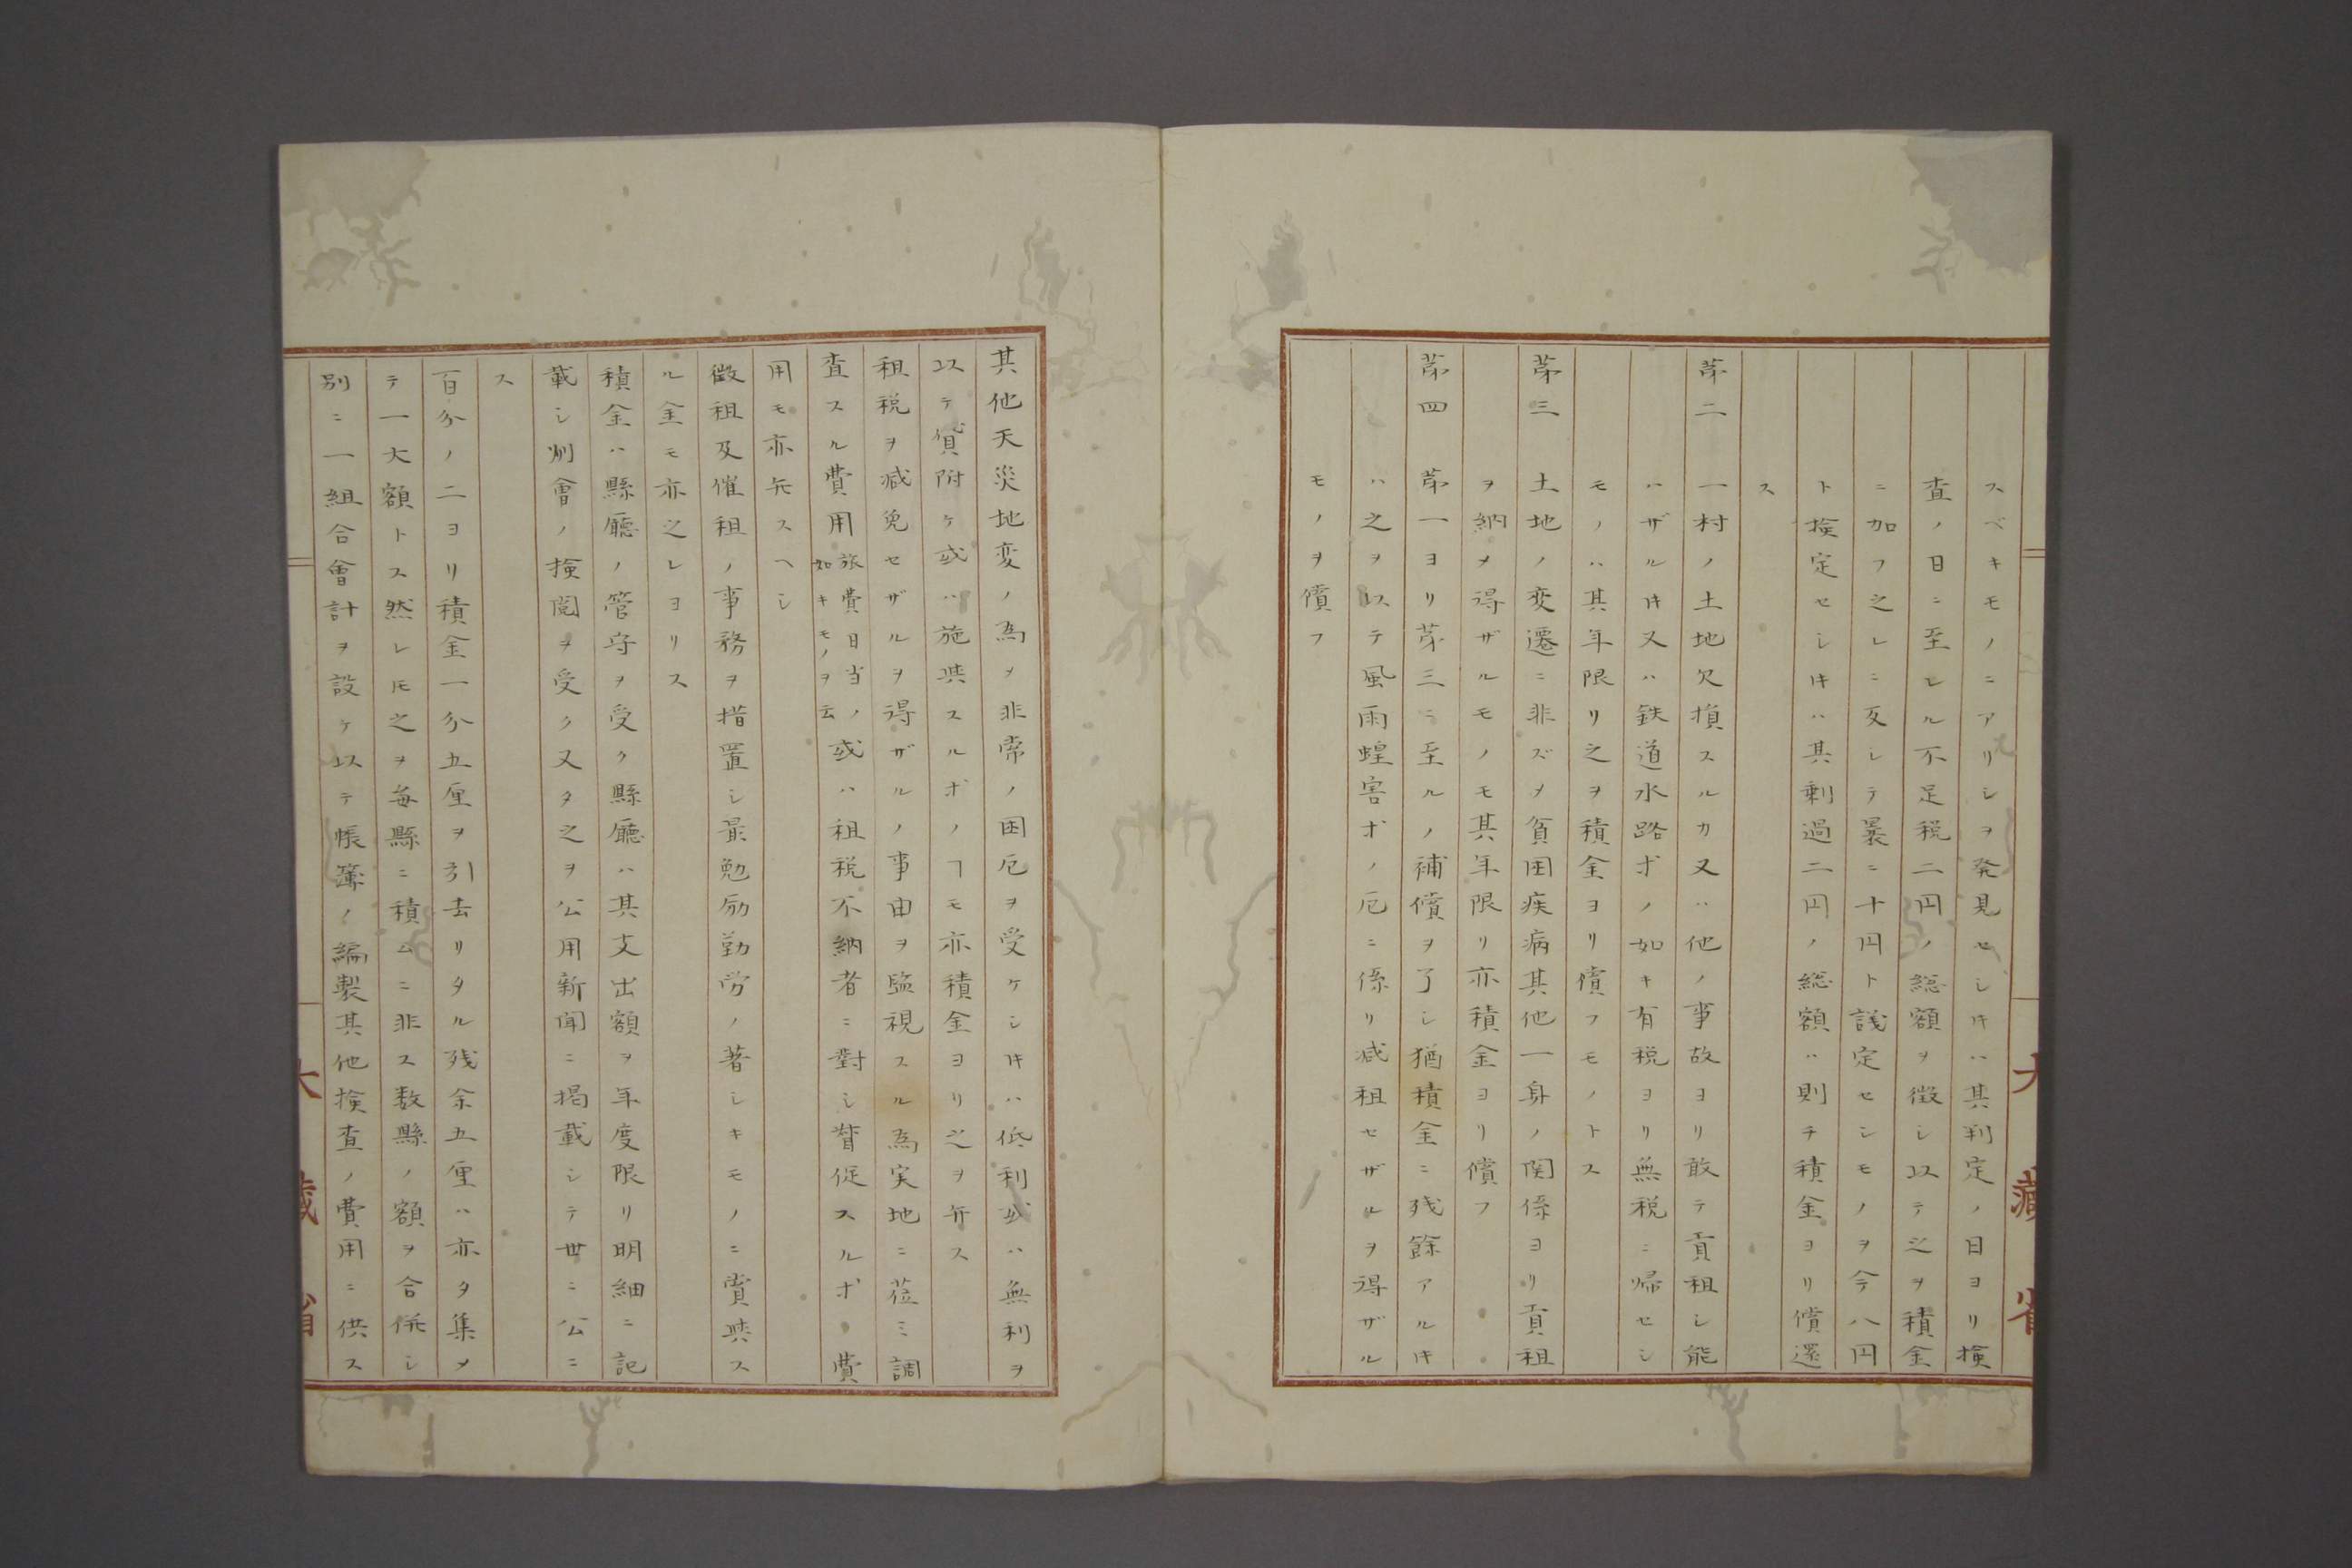 スベキモノニアリシヲ発見セシ𪜈ハ其判定ノ日ヨリ検
査ノ日ニ至ル不足税二円ノ総額ヲ徴シ以テ之ヲ積金
ニ加フ之レニ反シテ曩ニ十円ト議定セシモノヲ今八円
ト検定セシキハ其剰過二円ノ総額ハ則チ積金ヨリ償還
ス
苐二 一村ノ土地欠損スルカ又ハ他ノ事故ヨリ敢テ貢租シ能
ハザルキ又ハ鉄道水路ホノ如キ有税ヨリ無税ニ帰セシ
モノハ其年限リ之ヲ積金ヨリ償フモノトス
苐三 土地ノ変遷ニ非ズメ貧困疾病其他一身ノ関係ヨリ貢租
ヲ納メ得ザルモノモ其年限リ亦積金ヨリ償フ
苐四 苐一ヨリ苐三ニ至ルノ補償ヲ了シ猶積金ニ残餘アルキ
ハ之ヲ以テ風雨蝗害ホノ厄ニ係リ减租セザルヲ得ザル
モノヲ償フ
大藏省
其他天災地変ノ為メ非常ノ困厄ヲ受ケシキハ低利或ハ無利ヲ
以テ貸附ケ或ハ施與スルホノヿモ亦積金ヨリ之ヲ弁ス
租税ヲ减免セザルヲ得ザルノ事由ヲ監視スル為実地ニ莅ミ調
査スル費用旅費日当ノ如キモノヲ云或ハ租税不納者ニ對シ督促スルホノ費
用モ亦弁スヘシ
徴租及催租ノ事務ヲ措置シ最勉励勤労ノ著シキモノニ賞與ス
ル金モ亦之レヨリス
積金ハ縣廳ノ管守ヲ受ク縣廳ハ其支出額ヲ年度限リ明細ニ記
載シ州會ノ検閲ヲ受ク又タ之ヲ公用新聞ニ掲載シテ世ニ公ニ
ス
百分ノ二ヨリ積金一分五厘ヲ引去リタル残余五厘ハ亦タ集メ
テ一大額トス然レ𪜈之ヲ毎縣ニ積ムニ非ス数縣ノ額ヲ合併シ
別ニ一組合會計ヲ設ケ以テ帳簿ノ編製其他検査ノ費用ニ供ス
大藏省